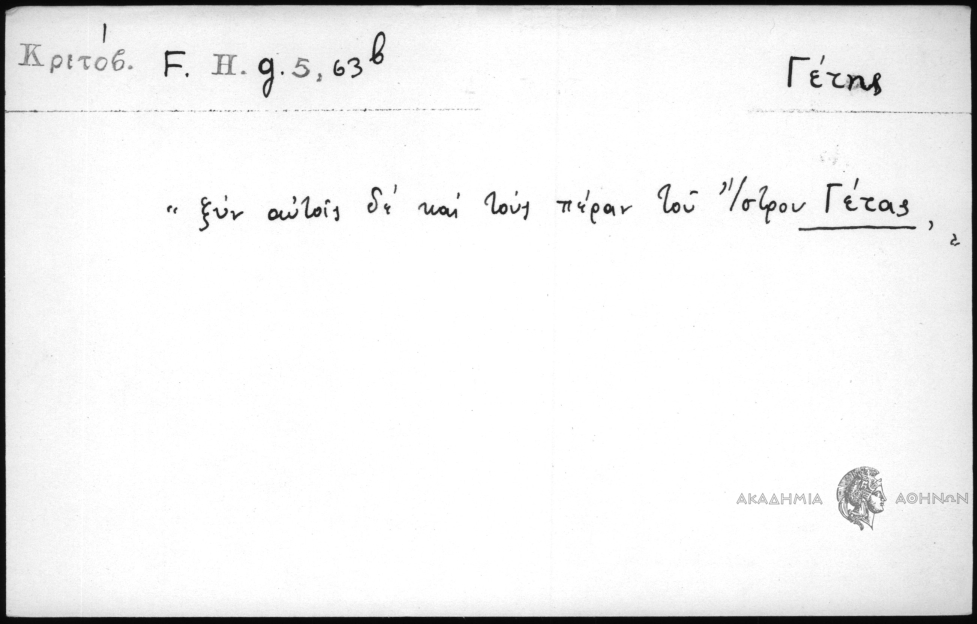 Κριτόβ. F. H. g. 5, 63b Γέτης
“ ξὺν αὐτοῖς δὲ καὶ τοὺς πέραν τοῦ Ἴστρου Γέτας, „
ΑΚΑΔΗΜΙΑ ΑΘΗΝΩΝ